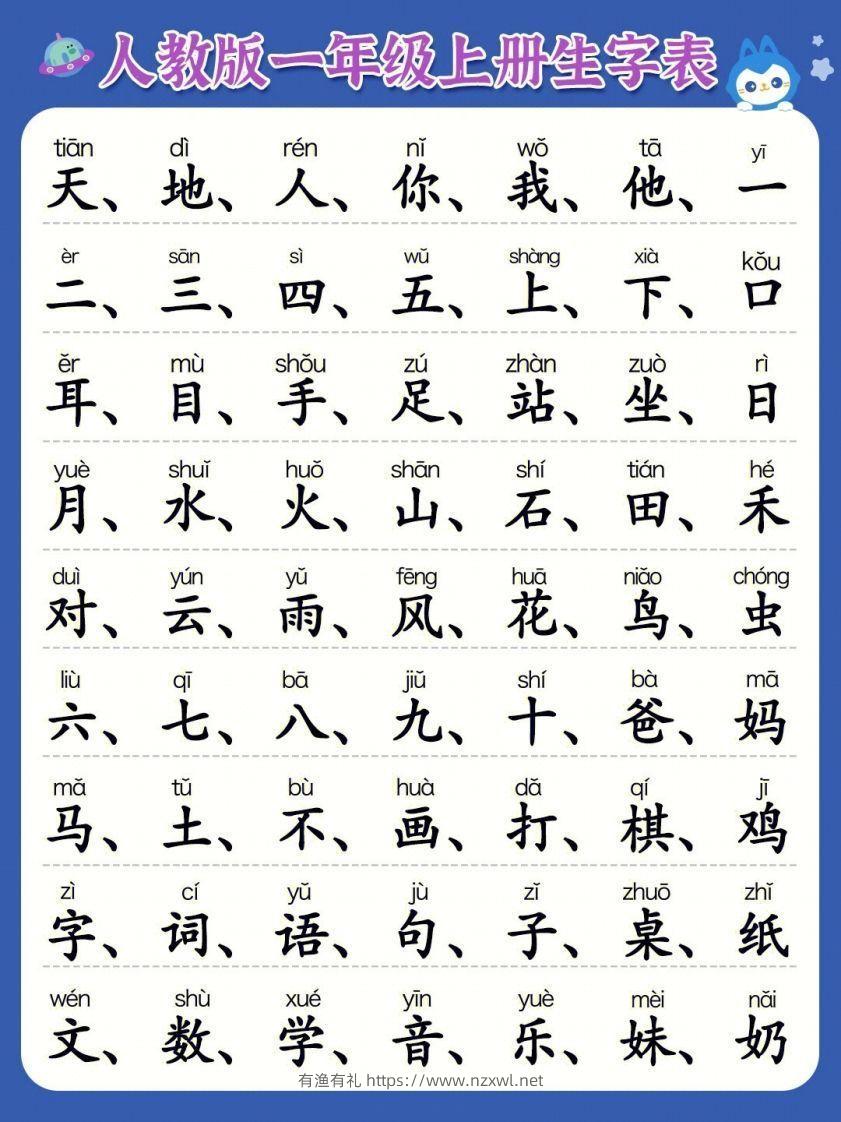 人教版一年级上册生字表
tiān dì rén nǐ wǒ tā yī
天、地、人、你、我、他、一
èr sān sì wǔ shàng xià kǒu
二、三、四、五、上、下、口
ěr mù shǒu zú zhàn zuò rì
耳、目、手、足、站、坐、日
yuè shuǐ huǒ shān shí tián hé
月、水、火、山、石、田、禾
duì yún yǔ fēng huā niǎo chóng
对、云、雨、风、花、鸟、虫
liù qī bā jiǔ shí bà mā
六、七、八、九、十、爸、妈
mǎ tǔ bù huà dǎ qí jī
马、土、不、画、打、棋、鸡
zì cí yǔ jù zǐ zhuō zhǐ
字、词、语、句、子、桌、纸
wén shù xué yīn yuè mèi nǎi
文、数、学、音、乐、妹、奶
有渔有礼 https://www.nzxwl.net